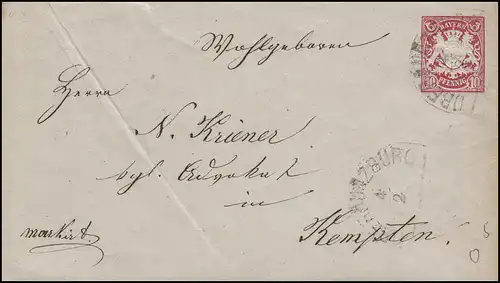 Wohlgeboren
BAYERN
10 PFENNIG 10
Herrn
N. Kriener
kgl. Advokat
in
Kempten!
markirt.
4
2